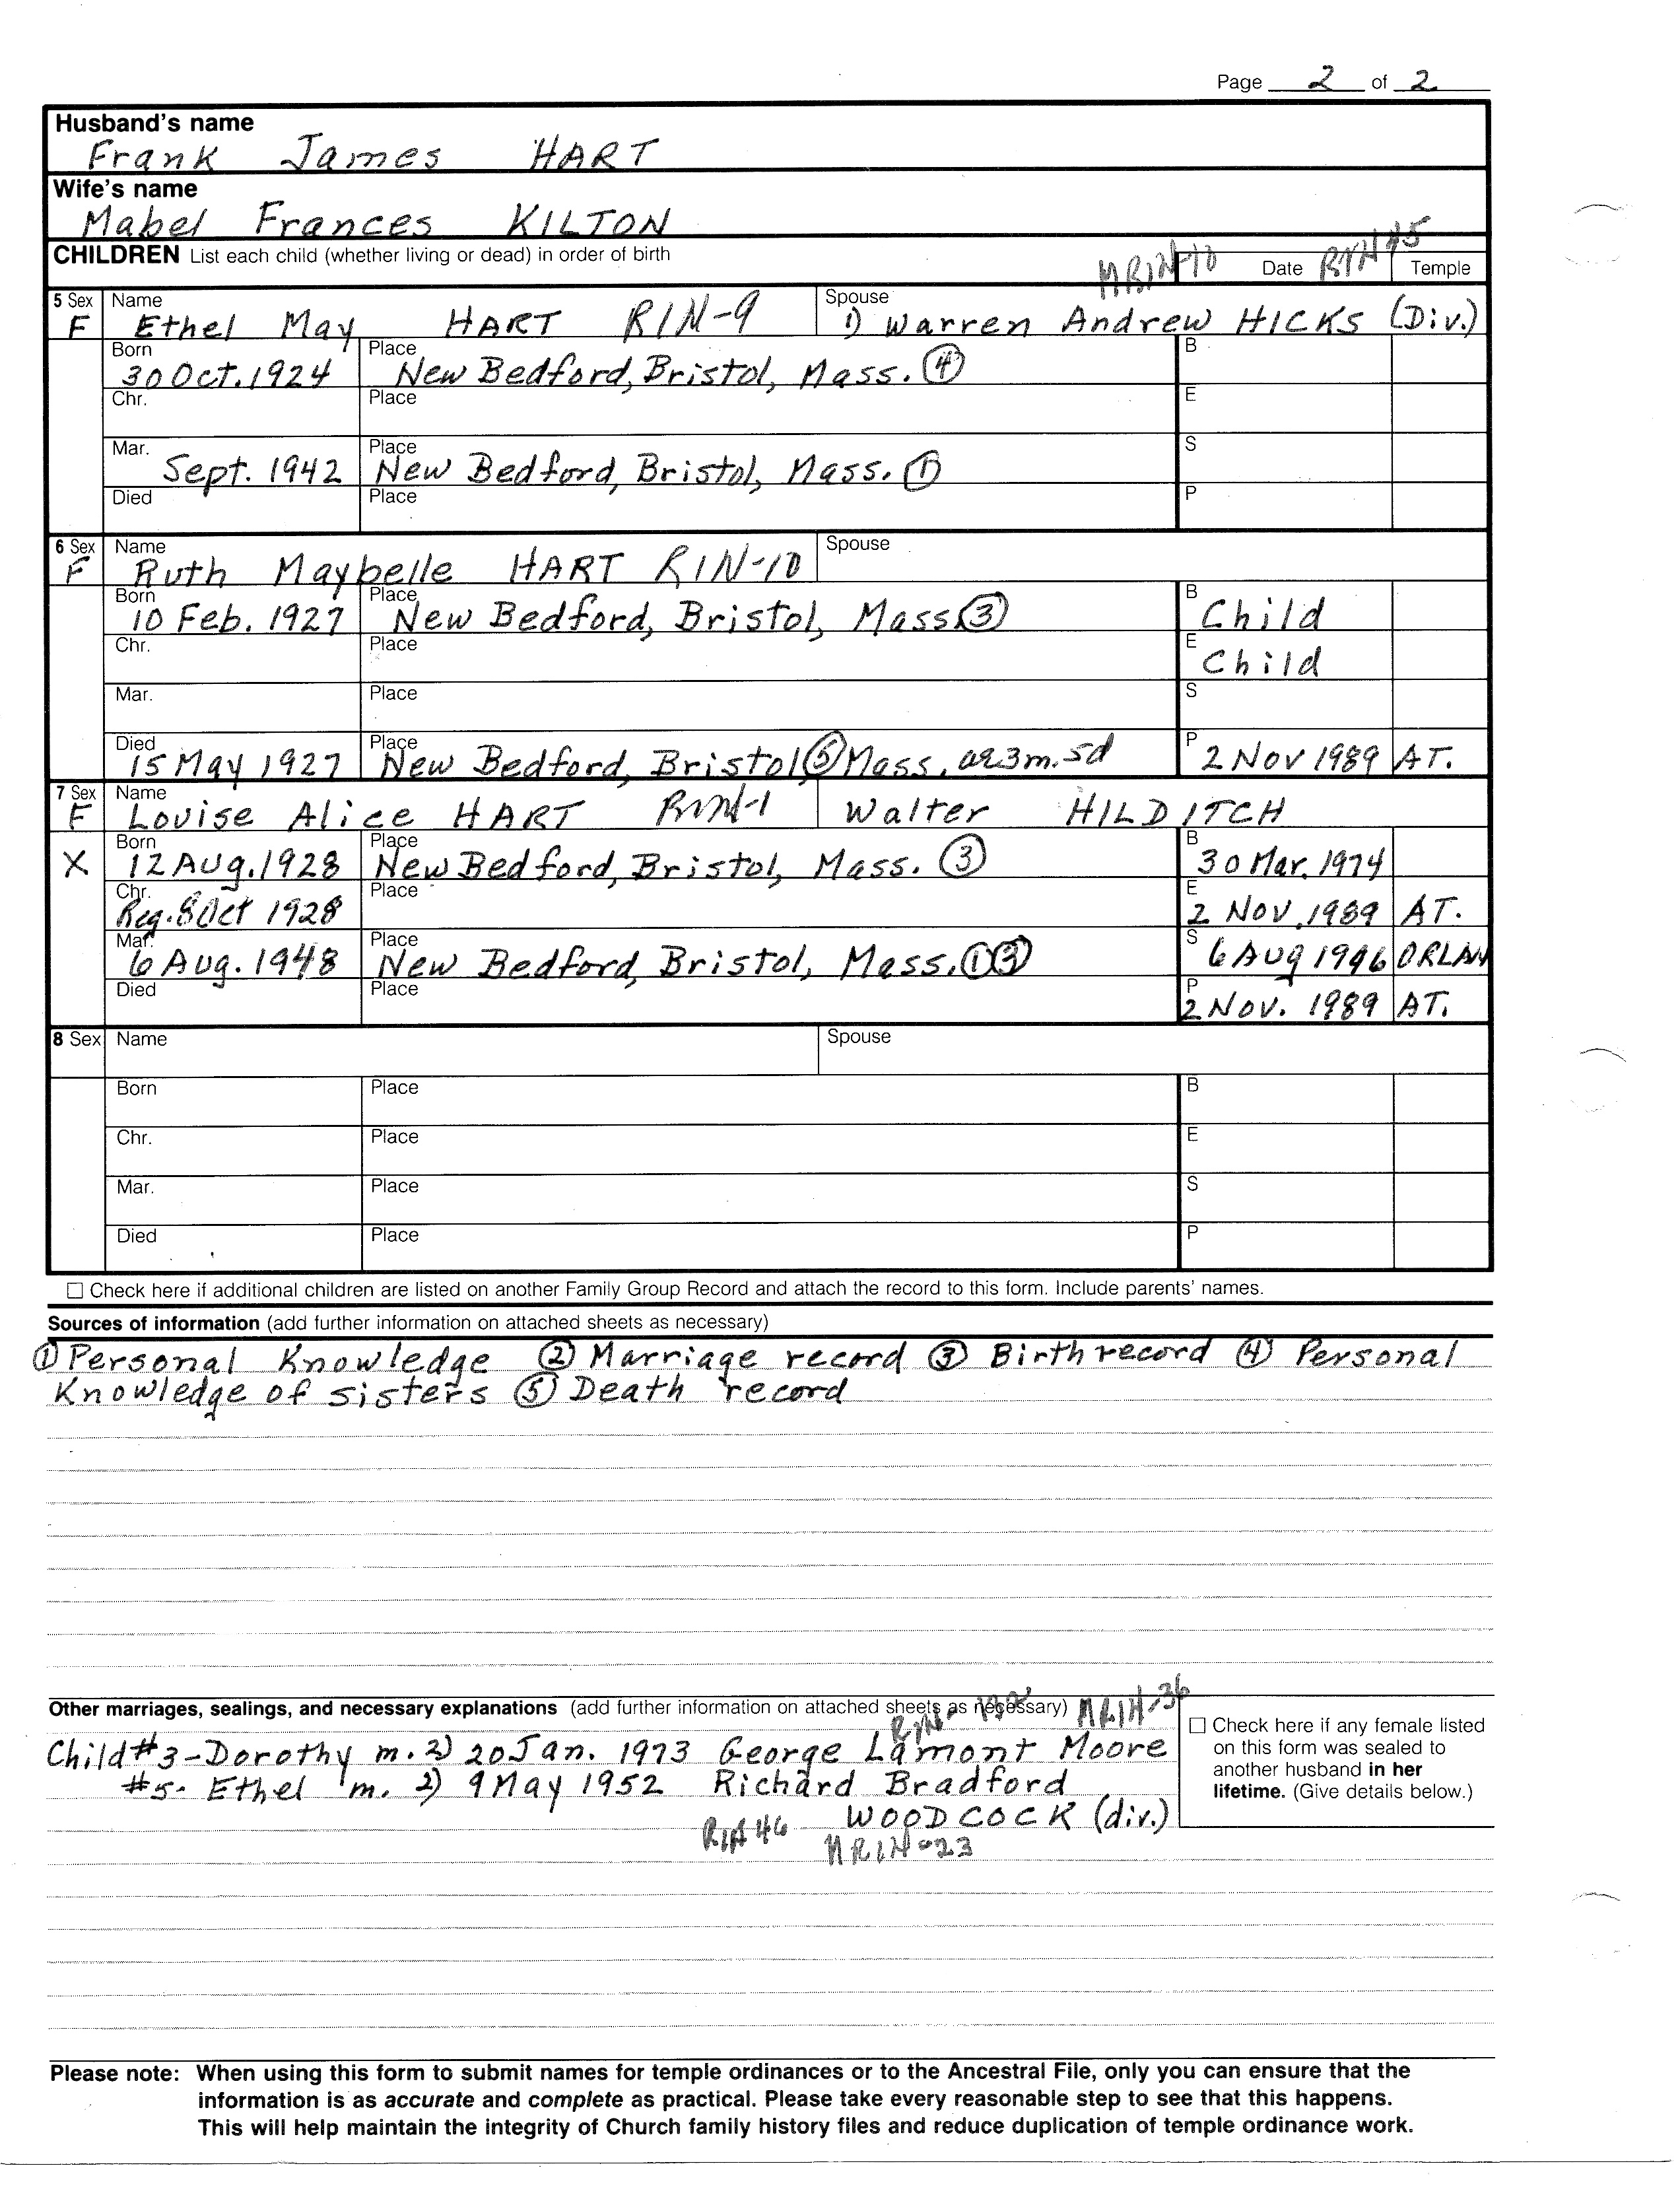 Page 2 of 2
Husband's name
Frank James HART
Wife's name
Mabel Frances KILTON
CHILDREN List each child (whether living or dead) in order of birth
MRIN-10 Date Temple
5 Sex Name Spouse
F Ethel May HART RIN-9 1) Warren Andrew HICKS (Div.)
Born Place B
30 Oct. 1924 New Bedford, Bristol, Mass. ④
Chr. Place E
Mar. Place S
Sept. 1942 New Bedford, Bristol, Mass. ①
Died Place P
6 Sex Name Spouse
F Ruth Maybelle HART RIN-10
Born Place B
10 Feb. 1927 New Bedford, Bristol, Mass ③ Child
Chr. Place E
Child
Mar. Place S
Died Place P
15 May 1927 New Bedford, Bristol ⑤ Mass. 3m. 5d 2 Nov 1989 AT.
7 Sex Name
F Louise Alice HART RIN-1 Walter HILDITCH
Born Place B
X 12 Aug. 1928 New Bedford, Bristol, Mass. ③ 30 Mar. 1974
Chr. Place E
Reg. 8 Oct 1928 2 Nov. 1989 AT.
Mar. Place S
6 Aug. 1948 New Bedford, Bristol, Mass. ① ③ 6 Aug 1996 ORLAN
Died Place P
2 Nov. 1989 AT.
8 Sex Name Spouse
Born Place B
Chr. Place E
Mar. Place S
Died Place P
☐ Check here if additional children are listed on another Family Group Record and attach the record to this form. Include parents' names.
Sources of information (add further information on attached sheets as necessary)
① Personal Knowledge ② Marriage record ③ Birth record ④ Personal
Knowledge of sisters ⑤ Death record
Other marriages, sealings, and necessary explanations (add further information on attached sheets as necessary) MRIN-36
Child #3-Dorothy m. 2) 20 Jan. 1973 George Lamont Moore
#5- Ethel m. 2) 9 May 1952 Richard Bradford
WOODCOCK (div.)
MRIN-23
☐ Check here if any female listed
on this form was sealed to
another husband in her
lifetime. (Give details below.)
Please note: When using this form to submit names for temple ordinances or to the Ancestral File, only you can ensure that the
information is as accurate and complete as practical. Please take every reasonable step to see that this happens.
This will help maintain the integrity of Church family history files and reduce duplication of temple ordinance work.